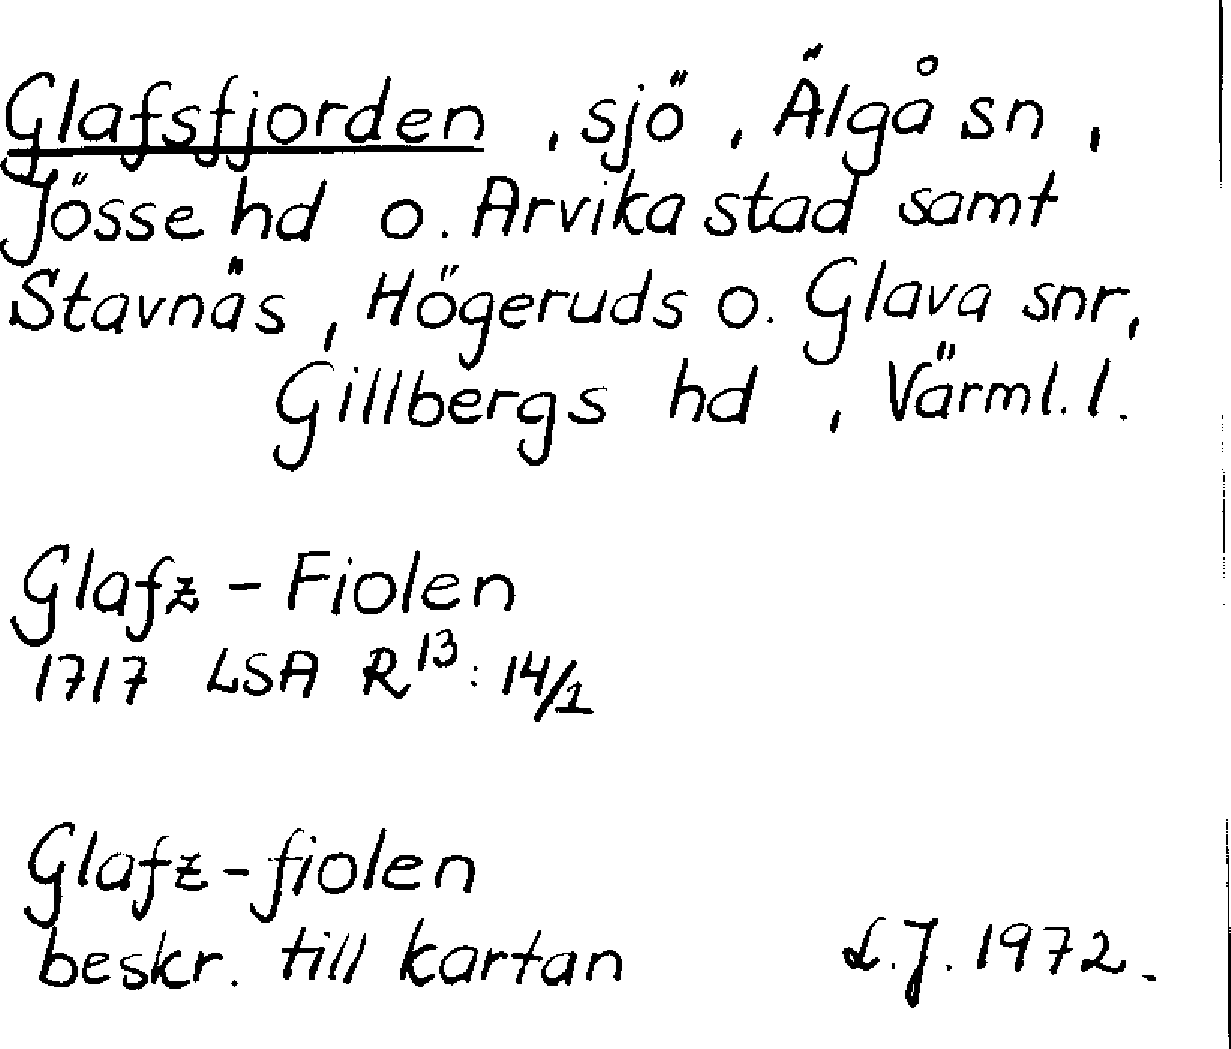 Glafsfjorden, sjö, Älgå sn,
Jösse hd o. Arvika stad samt
Stavnäs, Högeruds o. Glava snr,
Gillbergs hd, Värml. l.
Glafz-Fiolen
1717 LSA R13: 14/1
Glafz-fiolen
beskr. till kartan
L.J. 1972.